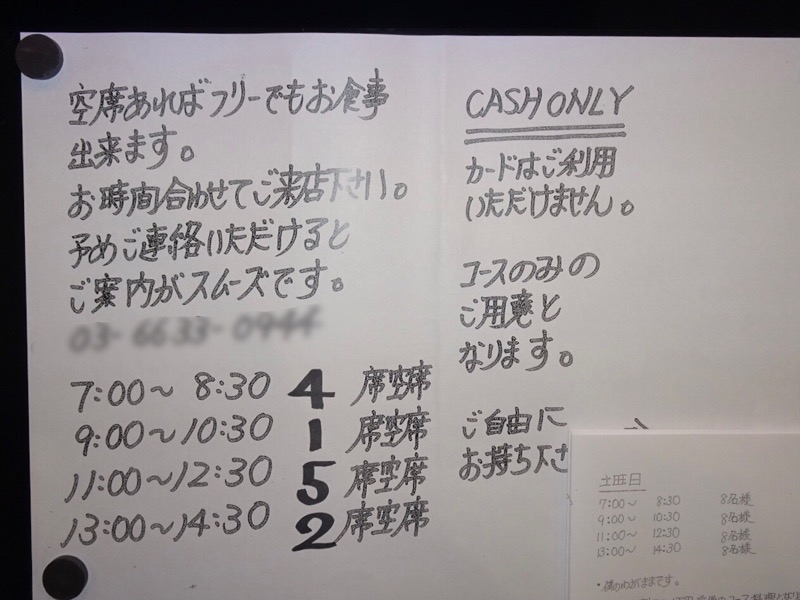 空席あればフリーでもお食事
出来ます。
お時間合わせてご来店下さい。
予めご連絡いただけると
ご案内がスムーズです。
7:00〜 8:30 4 席空席
9:00〜10:30 1 席空席
11:00〜12:30 5 席空席
13:00〜14:30 2 席空席
CASH ONLY
カードはご利用
いただけません。
コースのみの
ご用意と
なります。
ご自由に
お持ち下さ
土曜日
7:00〜 8:30 8名様
9:00〜 10:30 8名様
11:00〜 12:30 8名様
13:00〜 14:30 8名様
・僕のわがままです。